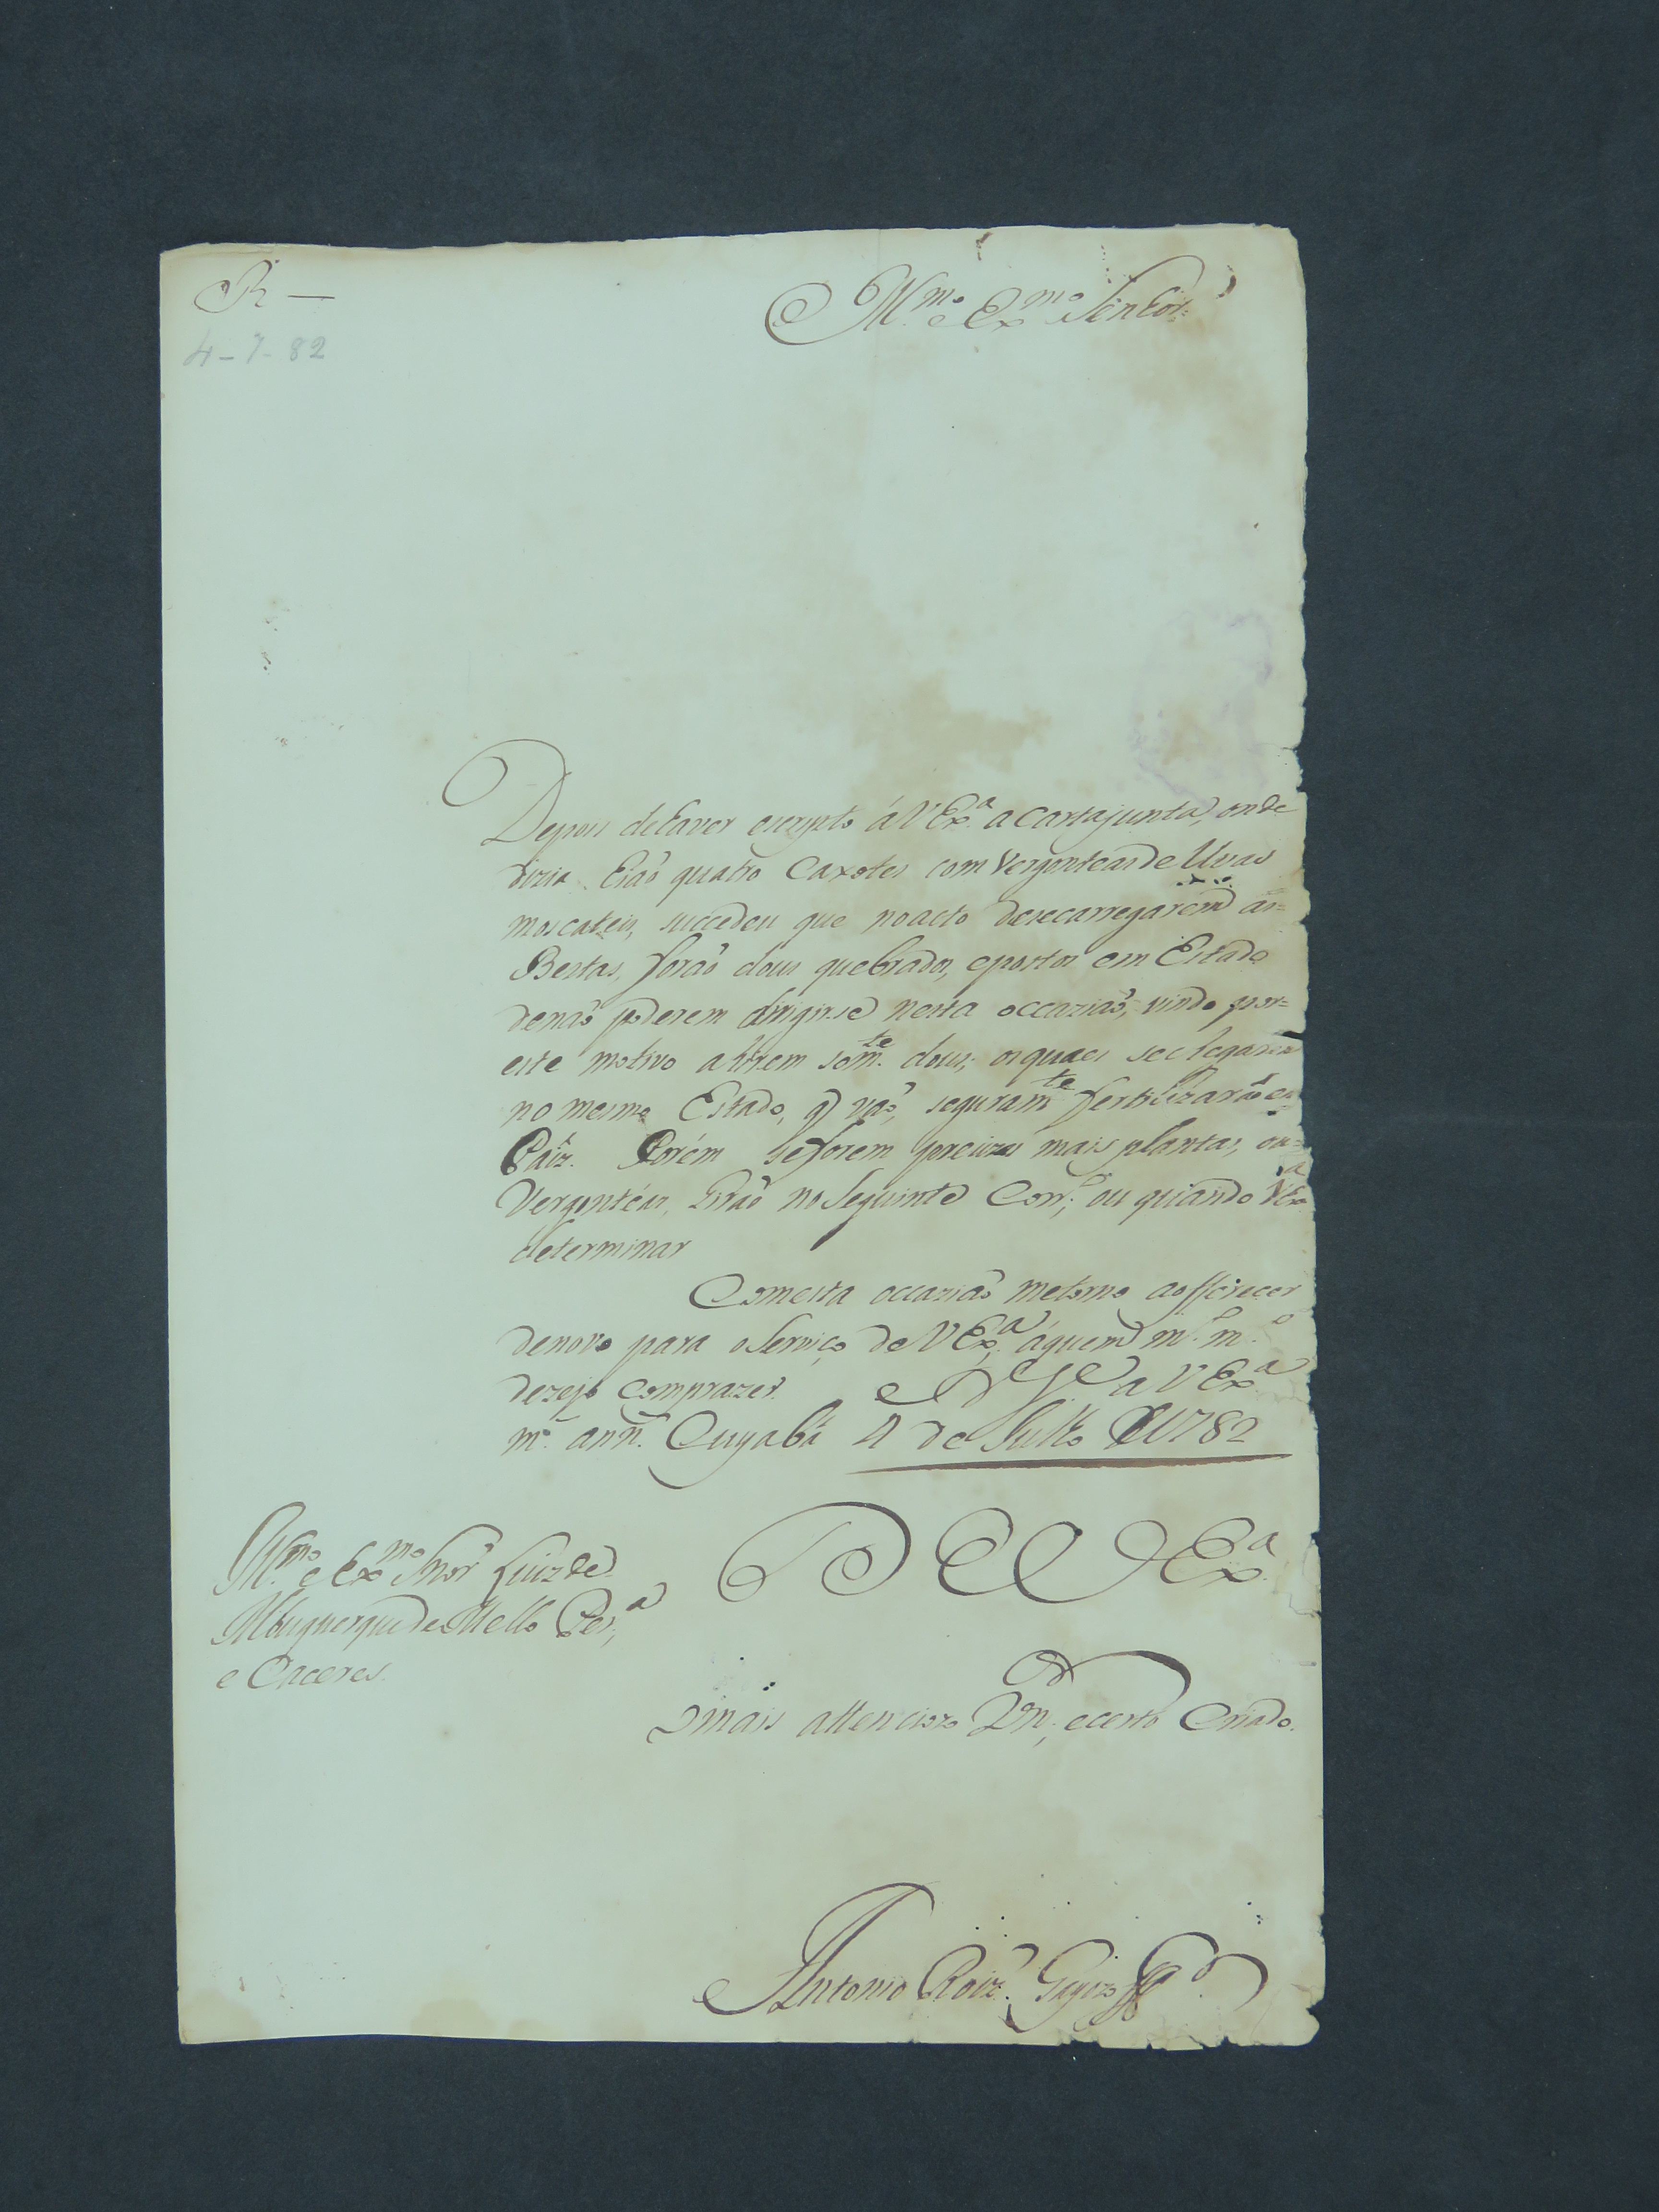 R —
Ill.mo e Ex.mo Senhor
4-7-82
Depois dehaver escrypto áVEx.a aCartajunta, onde
dizia. hião quatro Caxotes com Vergonteas de Uvas
moscateis, succedeu que noacto desecarregarem as=
Bestas, forão dous quebrados, epostos em Estado
denão poderem dirigirse nesta occazião, vindo por=
este motivo a hirem som.te dous; osquaes sechegarem
no mesmo Estado, q vão, seguram.te fertilizarão
Paiz. Porém seforem precizas mais plantas, ou=
Vergonteas, hirão noSeguinte Corr.o; ou quando VEx.a
determinar
Comesta occazião metorno aofferecer
denovo para oServiço de VEx.a; áquem m.o m.o
dezejo comprazer. D G.e a VEx.a
m.s ann.s Cuyabá 4 de Julho de 1782
De V Ex.a
Ill.mo e Ex.mo Snor' Luiz de
Albuquerque de Mello Per.a
e Caceres.
Omais attencioso V.or, ecerto Criado.
Antonio Roiz'